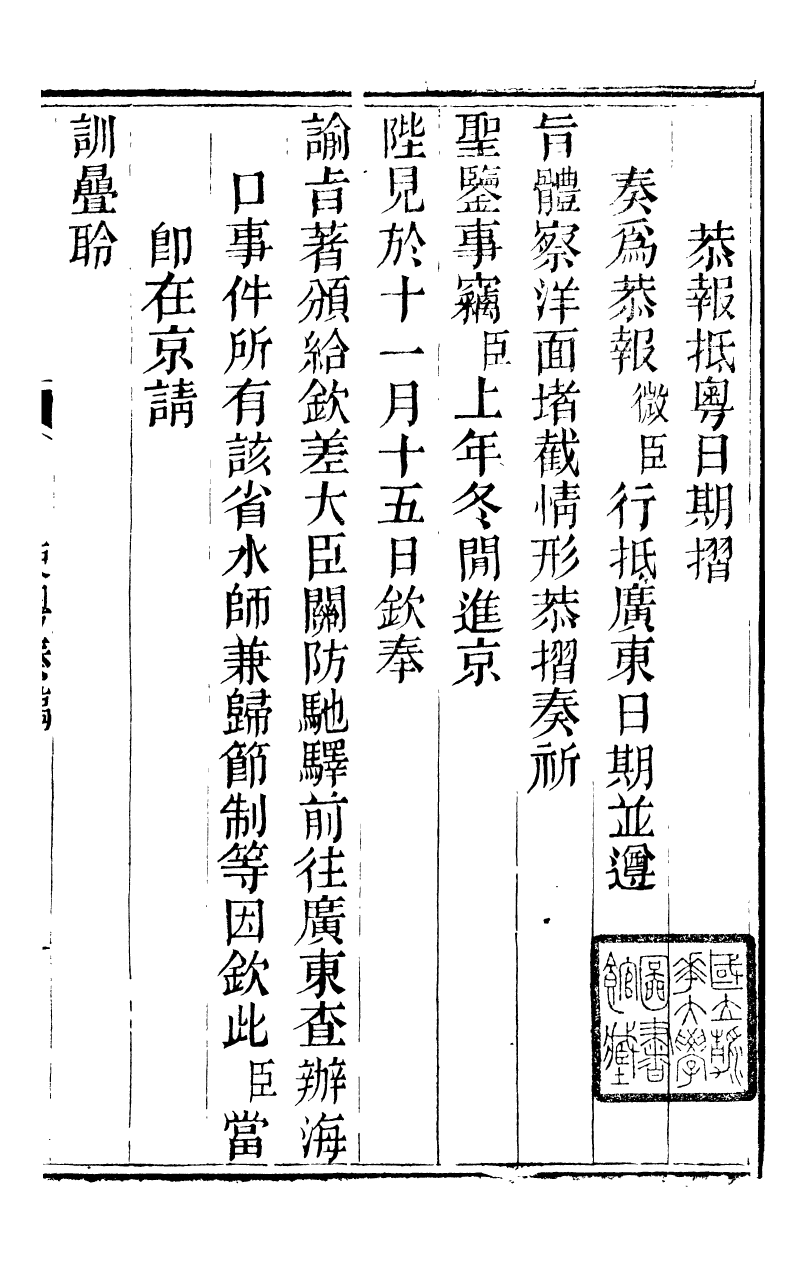 恭報抵粵日期摺
奏爲恭報微臣行抵廣東日期並遵
旨體察洋面堵截情形恭摺奏祈
聖鑒事竊臣上年冬閒進京
陛見於十一月十五日欽奉
諭旨著頒給欽差大臣關防馳驛前往廣東查辦海
口事件所有該省水師兼歸節制等因欽此臣當
卽在京請
訓疊聆
國立清
華大學
圖書
館藏